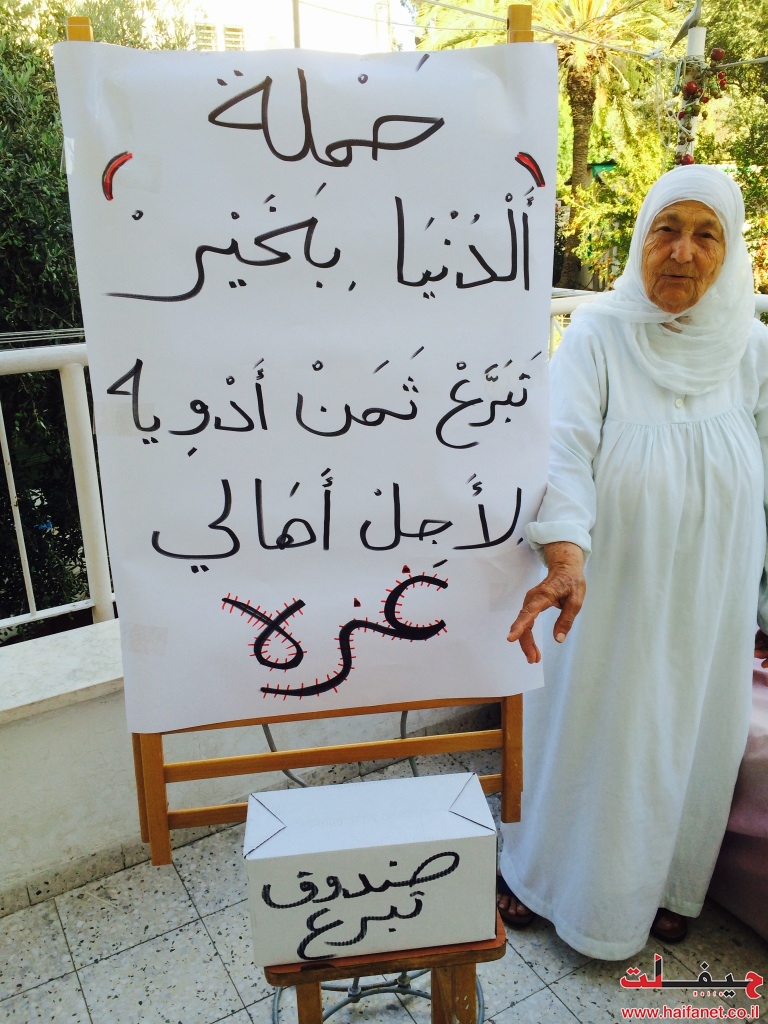 حَمْلة
(أَلْدُنْيَا بِخَيْرْ)
تَبَرَّعْ ثَمَنْ أَدْوِيه
لِأَجِلْ أَهَالي
غزه
صندوق
تبرع
حيفا نت
www.haifanet.co.il